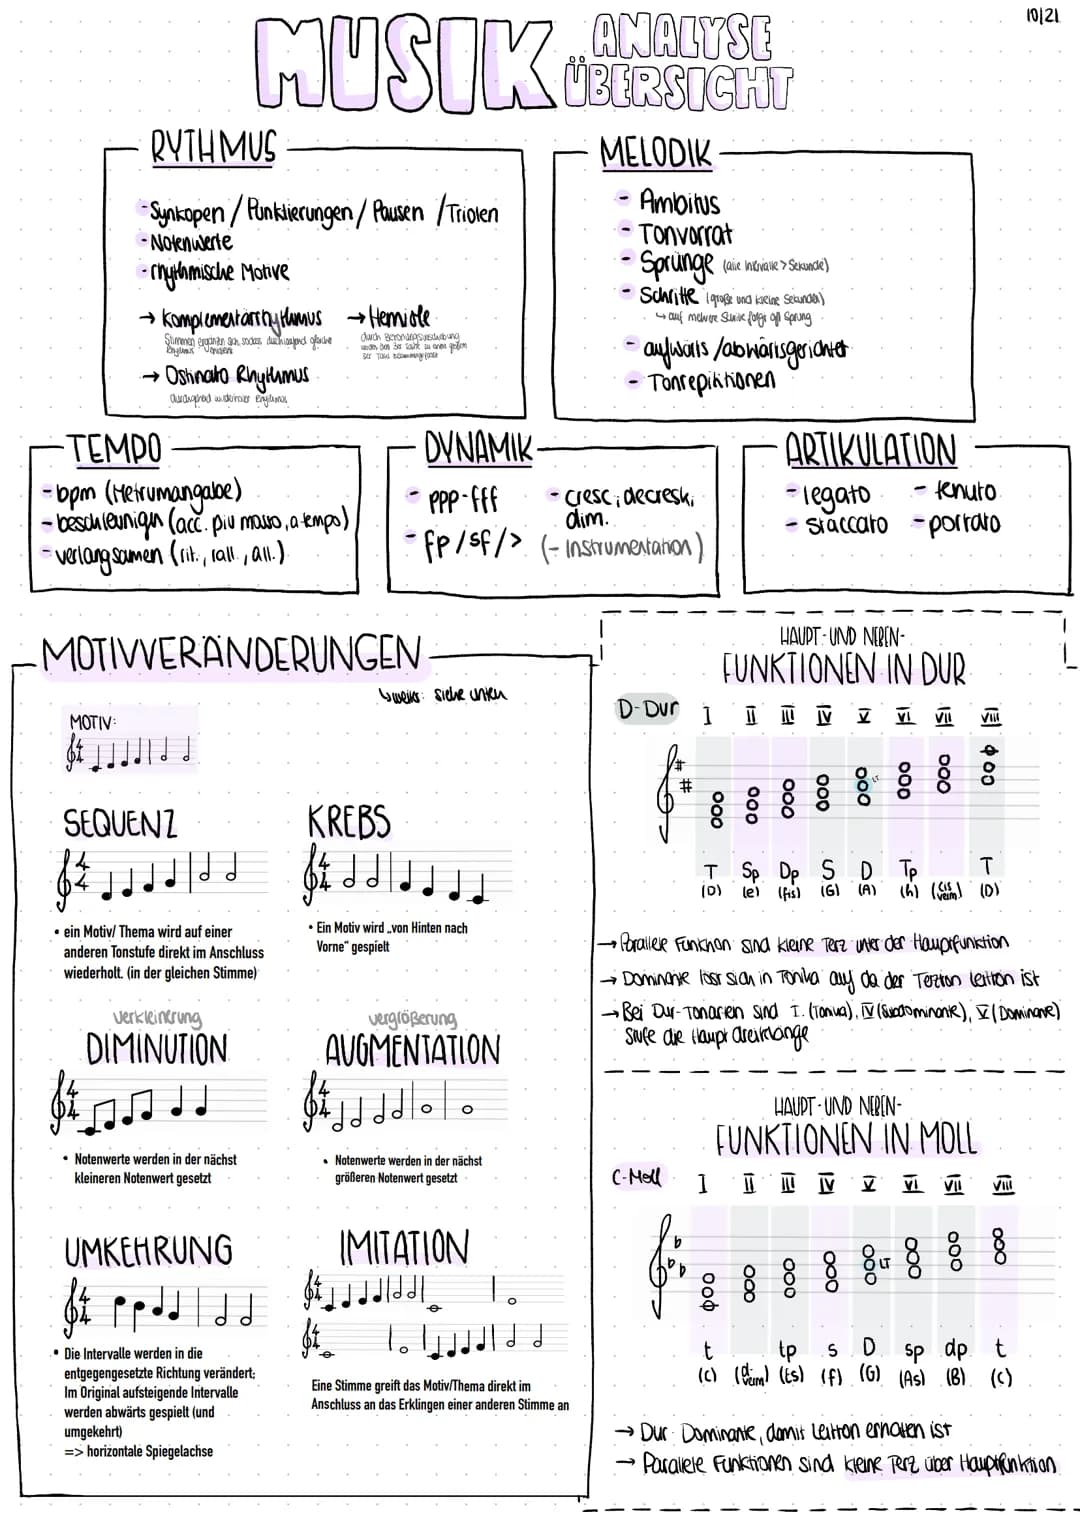 10/21
MUSIK ANALYSE
ÜBERSICHT
RYTHMUS
- Synkopen / Punktierungen / Pausen / Triolen
- Notenwerte
- rhythmische Motive
→ Komplementärrhythmus → Hemiole
Stimmen ergänzen sich, sodass durchgehend gleiche
Rhythmus
→ Ostinato Rhythmus
MELODIK
- Ambitus
- Tonvorrat
- Sprünge (alle Intervalle > Sekunde)
- Schritte (große und kleine Sekunden)
↳ auf mehrere Schritte folgt oft Sprung
- aufwärts / abwärtsgerichtet
- Tonrepititionen
TEMPO
- bpm (Metrumangabe)
- beschleunigen (acc. piu mosso, a tempo)
- verlangsamen (rit., rall., all.)
DYNAMIK
- ppp-fff
- fp / sf / >
- cresc; decresk;
dim.
(- Instrumentation)
ARTIKULATION
- legato
- staccato
- tenuto
- portato
MOTIVVERÄNDERUNGEN
↳ weiter: siehe unten
MOTIV:
SEQUENZ
• ein Motiv/ Thema wird auf einer
anderen Tonstufe direkt im Anschluss
wiederholt. (in der gleichen Stimme)
KREBS
• Ein Motiv wird „von Hinten nach
Vorne" gespielt
Verkleinerung
DIMINUTION
• Notenwerte werden in der nächst
kleineren Notenwert gesetzt
vergrößerung
AUGMENTATION
• Notenwerte werden in der nächst
größeren Notenwert gesetzt
UMKEHRUNG
• Die Intervalle werden in die
entgegengesetzte Richtung verändert;
Im Original aufsteigende Intervalle
werden abwärts gespielt (und
umgekehrt)
=> horizontale Spiegelachse
IMITATION
Eine Stimme greift das Motiv/Thema direkt im
Anschluss an das Erklingen einer anderen Stimme an
HAUPT- UND NEBEN-
FUNKTIONEN IN DUR
D-Dur I II III IV V VI VII VIII
LT
T Sp Dp S D Tp T
(D) (e) (fis) (G) (A) (h) (cis verm) (D)
→ Parallele Funktion sind kleine Terz unter der Hauptfunktion
→ Dominante löst sich in Tonika auf da der Terzton Leitton ist
→ Bei Dur-Tonarten sind I. (Tonika), IV (Subdominante), V (Dominante)
Stufe die Hauptdreiklänge
HAUPT- UND NEBEN-
FUNKTIONEN IN MOLL
C-Moll I II III IV V VI VII VIII
LT
t tp s D sp dp t
(c) (d verm) (Es) (f) (G) (As) (B) (c)
→ Dur Dominante, damit Leitton erhalten ist
→ Parallele Funktionen sind kleine Terz über Hauptfunktion